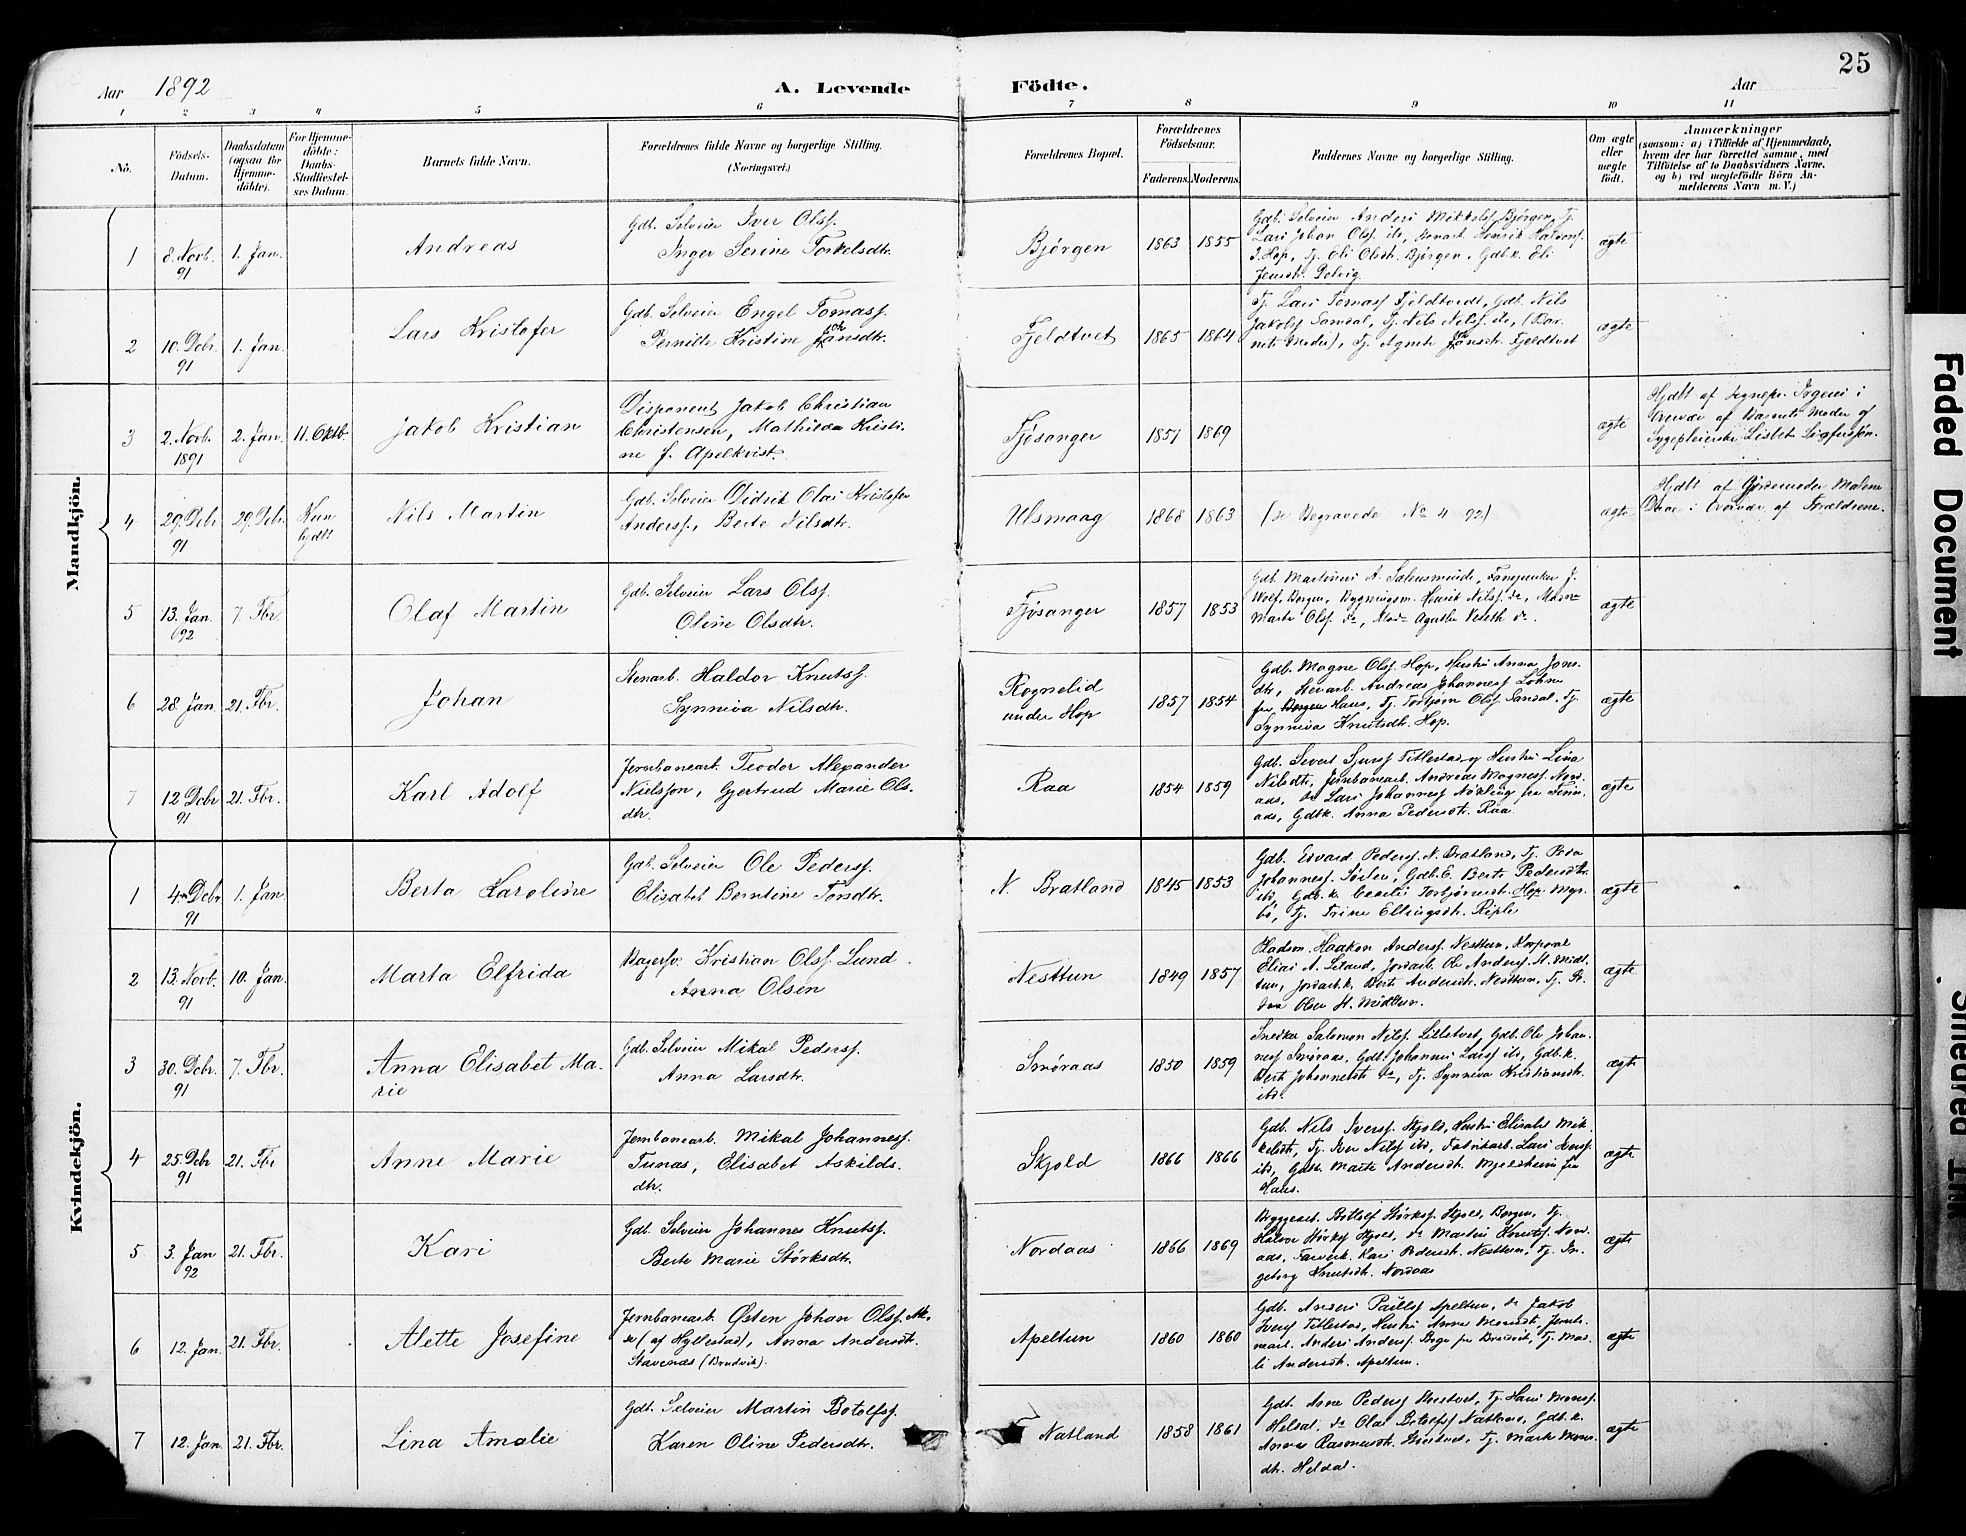 25
Aar 1892 A. Levende Födte. Aar
1 2 3 4 5 6 7 8 9 10 11
No. Födsels-Datum. Daabsdatum (ogsaa for Hjemme-döbte). For Hjemme-döbte: Daabs-Stadfæstelses Datum. Barnets fulde Navn. Forældrenes fulde Navne og borgerlige Stilling. (Næringsvei.) Forældrenes Bopæl. Forældrenes Födselsaar. Faderens. Moderens. Faddernes Navne og borgerlige Stilling. Om ægte eller uægte födt. Anmærkninger (saasom: a) i Tilfælde af Hjemmedaab, hvem der har forrettet samme, med Tilföielse af to Daabsvidners Navne, og b) ved uægtefödte Börn Anmelderens Navn m. V.)
Mandkjön.
1 8. Novb. 91 1. Jan. Andreas Gdb. Selveier Iver Olsf.
Inger Serine Torkelsdtr. Bjørgen 1863 1855 ægte
Gdb. Selveier Anders Mikkelsf. Bjørgen, Tj.
Lars Johan Olsf. ibd, Henrik
Hop, Tj. Eli Olsdtr. Bjørgen, Gdbk. Eli
2 10. Debr. 91 1. Jan. Lars Kristofer Gdb. Selveier Engel Tomasf.
Pernille Kristine Jansdtr. Fjeldtvet 1865 1864 ægte
Tj. Lars Tomasf Fjeldtvedt, Gdb. Nils
Jakobsf Sandal, Tj. Nils Nilsf. ibd, (Bar-
nets Moder), Tj. Agnete Fjeldtvet
3 2. Novb. 1891 2. Jan. 11. Oktb. Jakob Kristian Disponent Jakob Christian
Christensen, Mathilda Kristi-
ne f. Apelkvist. Fjøsanger 1857 1869 ægte
Hjdbt af Sognepr. Irgens i
Overvær af Barnets Moder og
Sygepleierske Lisbet
4 29. Debr 91 29. Debr. Kun hjdbt Nils Martin Gdb. Selveier Didrik Olai Kristofer
Andersf., Berte Nilsdtr. Ulsmaag 1868 1863 (se Begravede No 4 92) ægte
Hjdbt af Gjordemoder Malene
i Overvær af Forældrene.
5 13. Jan. 92 7. Fbr. Olaf Martin Gdb. Selveier Lars Olsf.
Oline Olsdtr. Fjøsanger 1857 1853 ægte
Gdb. Martinus A. Salhusminde, J.
Wolf, Bergen, Bygningsm. Henrik Nilsf. do,
Marta Olsf. do, Agathe do.
6 28. Jan. 21. Fbr. Johan Stenarb. Haldor Knutsf.
Synneva Nilsdtr. Rognelid
under Hop 1857 1854 ægte
Gdb. Magne Olsf. Hop, Hustru Anna Jons-
dtr, Stenarb. Andreas Johannesf
fra Haus, Tj. Torbjørn Olsf. Sandal, Tj.
Synneva Knutsdtr. Hop.
7 12 Debr 91 21. Fbr. Karl Adolf Jernbanearb. Teodor Alexander
Nielsson, Gjertrud Marie Ols-
dtr. Raa 1854 1859 ægte
Gdb. Severt Sjursf Tittlestad og Hustru Lina
Nilsdtr, Jernbanearb. Andreas Magnesf. Nord-
aas, do Lars Johannesf
Gdbk. Anna Pedersdtr. Raa
Kvindekjön.
1 4. Debr 91 1. Jan. Berta Karoline Gdb. Selveier Ole Pedersf.
Elisabet Berntine Torsdtr. N. Bratland 1845 1853 ægte
Gdb. Edvard Pedersf. N. Bratland, Tj. Peder
Johannesf. Gdbk. Berte Pedersdtr.
ibd, Gdbk. Cecilie Torbjørnsdtr. Hop. Myr-
bø, Tj. Trine Ellingsdtr. Riple
2 13. Novb. 91 10. Jan. Marta Elfrida Bagersv. Kristian Olsf. Lund
Anna Olsen Nesttun 1849 1857 ægte
Pladsm. Haakon Andersf. Nesttun, Korporal
Elias A. Leland, Jordarb. Ole Andersf. St. Midt-
tun, Jordarb.k. Berte Andersdtr. Nesttun, Tj.
Olsen St. Midttun.
3 30. Debr. 91 7. Fbr. Anna Elisabet Ma-
rie Gdb. Selveier Mikal Pedersf.
Anna Larsdtr. Smøraas 1850 1859 ægte
Snedker Salomon Nilsf. Lilletvet, Gdb. Ole Johan-
nesf Smøraas, Gdb. Johannes Larsf ibd, Gdb.k.
Berte Johannesdtr do, Tj. Synneva Kristiansdtr.
ibd.
4 25. Debr 91 21. Fbr Anne Marie Jernbanearb. Mikal Johannesf.
Tunæs, Elisabet Askilds-
dtr. Skjold 1866 1866 ægte
Gdb. Nils Iversf. Skjold, Hustru Elisabet Mik-
kelsdtr, Tj. Iver Nilsf ibd, Fabrikarb. Lars Iversf.
ibd, Marte Andersdtr. Mjeldheim fra
Haus.
5 3. Jan 92 21. Fbr. Kari Gdb. Selveier Johannes Knutsf.
Berte Marie Størksdtr. Nordaas 1866 1869 ægte
Bryggearb. Botholf Størksf. Hjels, Bergen, Tj.
Halvor Størksf Hjels, do Martin Knutsf. Nord-
aas, Kari Pedersdtr. Nesttun, Tj. In-
geborg Knutsdtr. Nordaas
6 12. Jan. 21. Fbr. Alette Josefine Jernbanearb. Østen Johan Olsf.
(af Hyllestad), Anna Andersdtr.
Stavenæs (Brudvik). Apeltun 1860 1860 ægte
Gdb. Anders Paulsf Apeltun, do Jakob
Iversf Tittlestad, Hustru Anna Monsdtr, Jernb-
nearb. Anders Andersf. fra Brudvik, Tj. Mar-
Andersdtr. Apeltun.
7 12. Jan. 21. Fbr. Lina Amalie Gdb. Selveier Martin Botolfsf.
Karen Oline Pedersdtr. Natland 1858 1861 ægte
Gdb. Arne Pedersf Tj. Hans Monsf.
Heldal, do Olai Botolfsf Natland, Gdb.k.
Anna Rasmusdtr. Tj. Marte Mons-
dtr. Heldal.
Faded Document
Smeared Ink